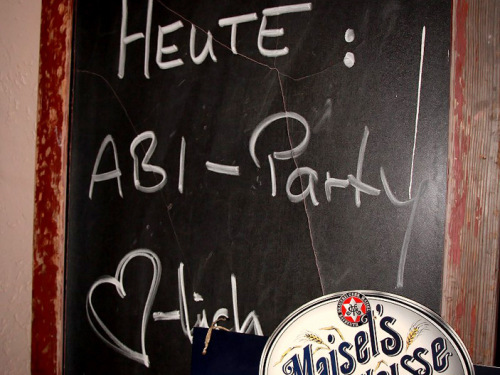 HEUTE :
ABI-Party
♡-lich
Maisel's